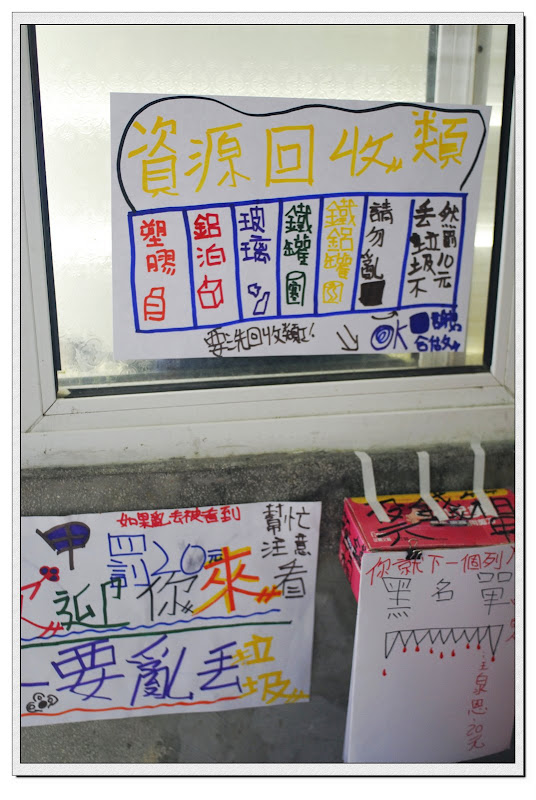 資源回收類
塑膠
鋁泊
玻璃
鐵罐
鐵鋁罐
請勿亂
丟垃圾不
然罰10元
要先回收類!!
OK
合作
如果亂丟被看到
罰20元
幫忙
注意
看
你來
要亂丟垃圾
你就下一個列
黑名單
20元